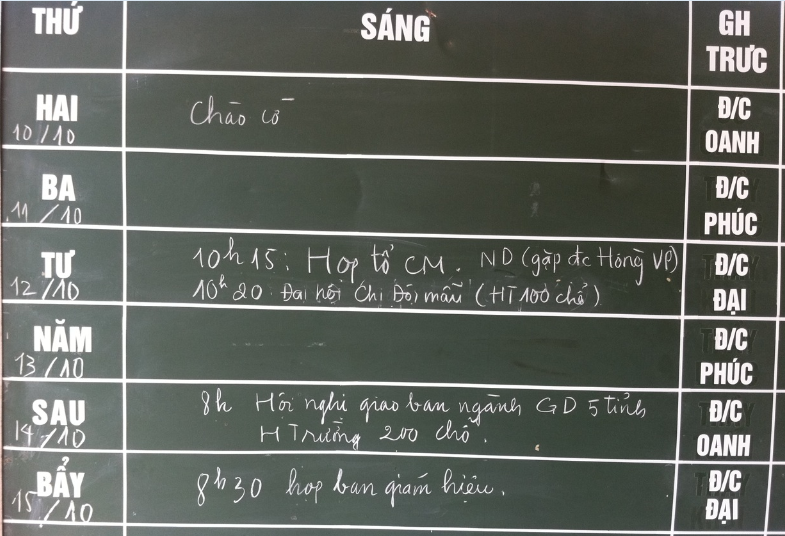 THỨ SÁNG GH TRỰC
HAI 10/10 Chào cờ Đ/C OANH
BA 11/10 Đ/C PHÚC
TƯ 12/10 10h15: Họp tổ CM. ND (gặp đc Hồng VP) Đ/C ĐẠI
10h20: Đại hội Chi Đội mẫu (HT 100 chỗ)
NĂM 13/10 Đ/C PHÚC
SAU 14/10 8h Hội nghị giao ban ngành GD 5 tỉnh Đ/C OANH
HTrường 200 chỗ.
BẨY 15/10 8h30 họp ban giám hiệu. Đ/C ĐẠI